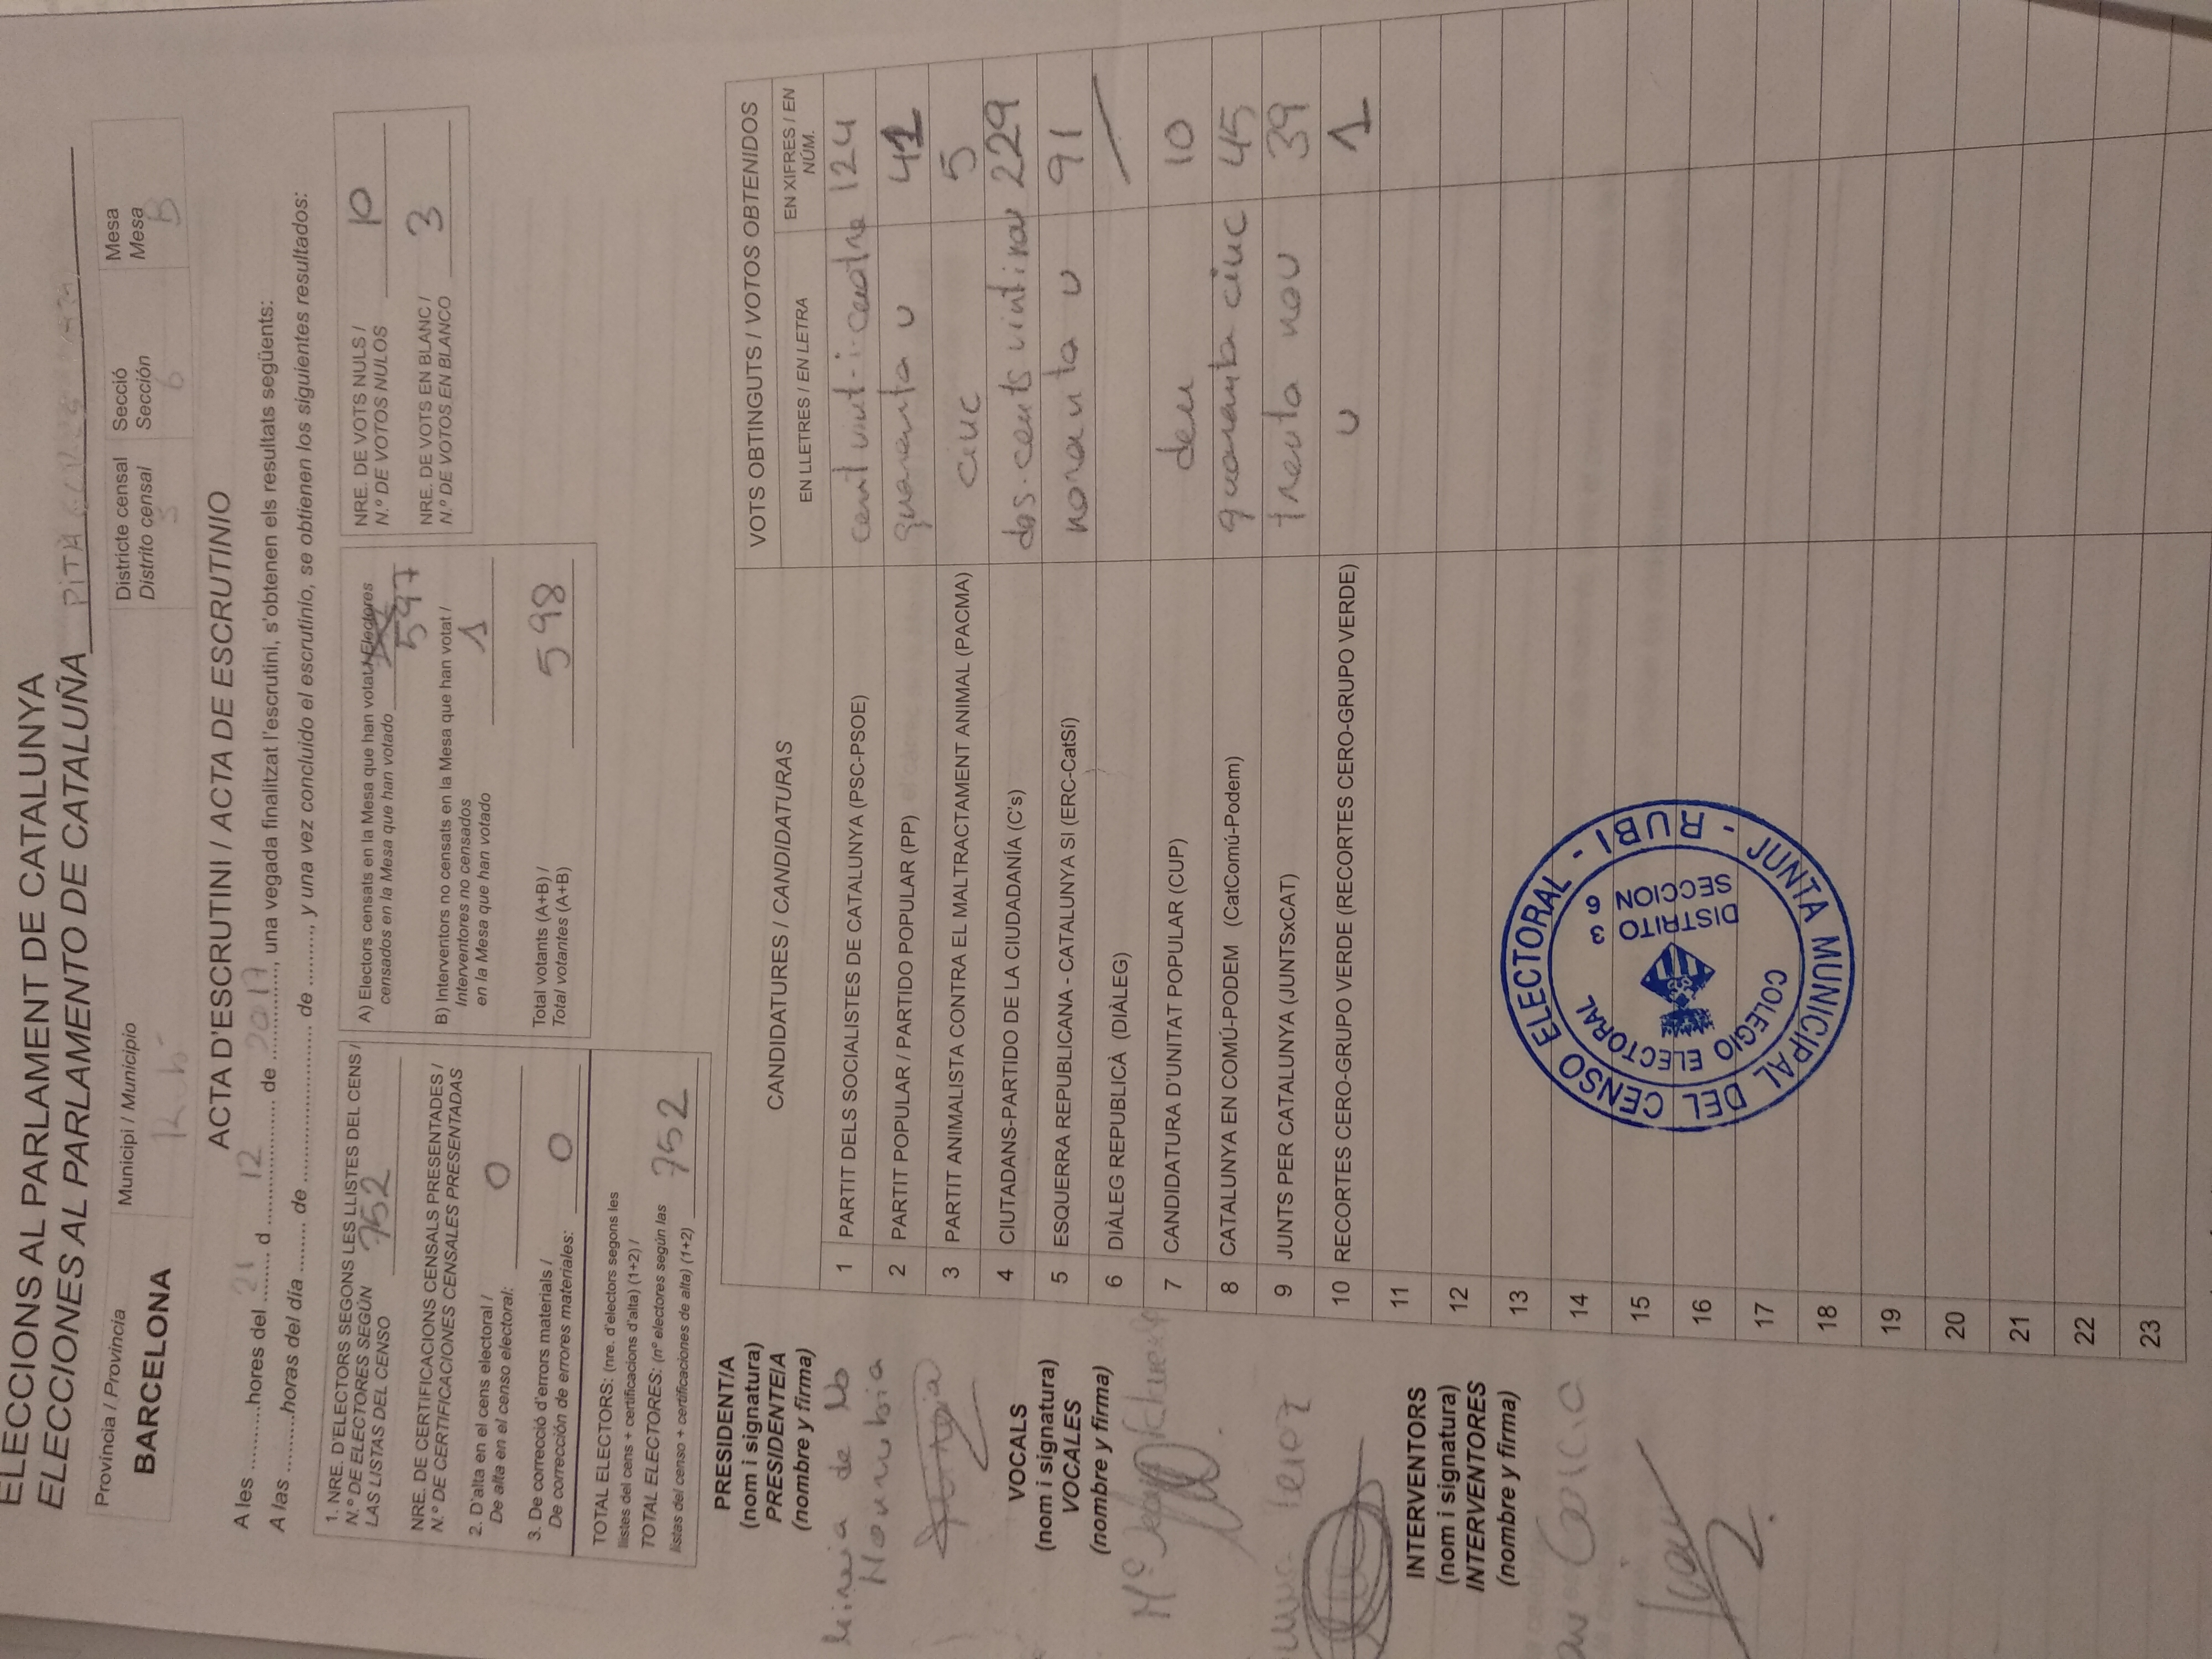 ELECCIONS AL PARLAMENT DE CATALUNYA
ELECCIONES AL PARLAMENTO DE CATALUÑA
Província / Provincia
BARCELONA
Municipi / Municipio
Rubí
Districte censal
Distrito censal
3
Secció
Sección
6
Mesa
Mesa
B
ACTA D'ESCRUTINI / ACTA DE ESCRUTINIO
A les ..........hores del 21 d 12 de 2017, una vegada finalitzat l'escrutini, s'obtenen els resultats següents:
A las .........horas del día ........ de ............................ de ........., y una vez concluido el escrutinio, se obtienen los siguientes resultados:
1. NRE. D'ELECTORS SEGONS LES LLISTES DEL CENS /
N.º DE ELECTORES SEGÚN
LAS LISTAS DEL CENSO 752
NRE. DE CERTIFICACIONS CENSALS PRESENTADES /
N.º DE CERTIFICACIONES CENSALES PRESENTADAS
2. D'alta en el cens electoral /
De alta en el censo electoral: 0
3. De correcció d'errors materials /
De corrección de errores materiales: 0
TOTAL ELECTORS: (nre. d'electors segons les
llistes del cens + certificacions d'alta) (1+2) /
TOTAL ELECTORES: (nº electores según las
listas del censo + certificaciones de alta) (1+2) 752
A) Electors censats en la Mesa que han votat / Electores
censados en la Mesa que han votado
597
B) Interventors no censats en la Mesa que han votat /
Interventores no censados
en la Mesa que han votado 1
Total votants (A+B) /
Total votantes (A+B) 598
NRE. DE VOTS NULS /
N.º DE VOTOS NULOS 10
NRE. DE VOTS EN BLANC /
N.º DE VOTOS EN BLANCO 3
PRESIDENT/A
(nom i signatura)
PRESIDENTE/A
(nombre y firma)
Mireia de
VOCALS
(nom i signatura)
VOCALES
(nombre y firma)
Mª
Perez
INTERVENTORS
(nom i signatura)
INTERVENTORES
(nombre y firma)
Garcia
CANDIDATURES / CANDIDATURAS
VOTS OBTINGUTS / VOTOS OBTENIDOS
EN LLETRES / EN LETRA
EN XIFRES / EN
NÚM.
1 PARTIT DELS SOCIALISTES DE CATALUNYA (PSC-PSOE) cent vint-i-cuatre 124
2 PARTIT POPULAR / PARTIDO POPULAR (PP) quaranta u 41
3 PARTIT ANIMALISTA CONTRA EL MALTRACTAMENT ANIMAL (PACMA) cinc 5
4 CIUTADANS-PARTIDO DE LA CIUDADANÍA (C's) dos-cents vintinou 229
5 ESQUERRA REPUBLICANA - CATALUNYA SI (ERC-CatSí) noranta u 91
6 DIÀLEG REPUBLICÀ (DIÀLEG)
7 CANDIDATURA D'UNITAT POPULAR (CUP) deu 10
8 CATALUNYA EN COMÚ-PODEM (CatComú-Podem) quaranta cinc 45
9 JUNTS PER CATALUNYA (JUNTSxCAT) trenta nou 39
10 RECORTES CERO-GRUPO VERDE (RECORTES CERO-GRUPO VERDE) u 1
11
12
13
14
15
16
17
18
19
20
21
22
23
JUNTA MUNICIPAL DEL CENSO ELECTORAL - RUBI -
COLEGIO ELECTORAL
DISTRITO 3
SECCION 6